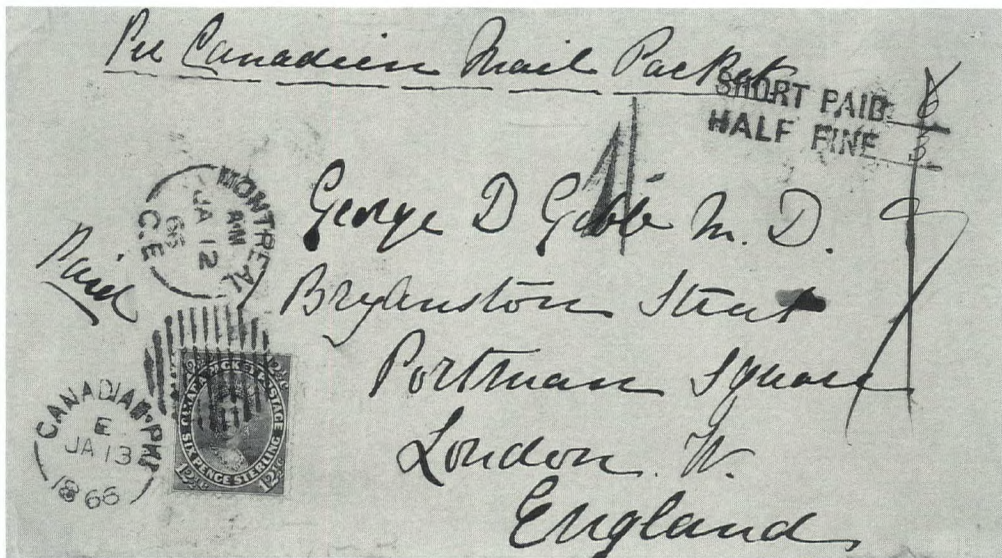 Per Canadian Mail Packet
SHORT PAID 6
HALF FINE 3
1/
9
MONTREAL
AM
JA 12
66
C.E
Paid
George D Gibb M. D.
Bryanston Street
Portman Square
London W.
England
CANADIAN PKT
E
JA 13
1866
CANADA PACKET POSTAGE
SIX PENCE STERLING
12½c 12½c
12½c 12½c